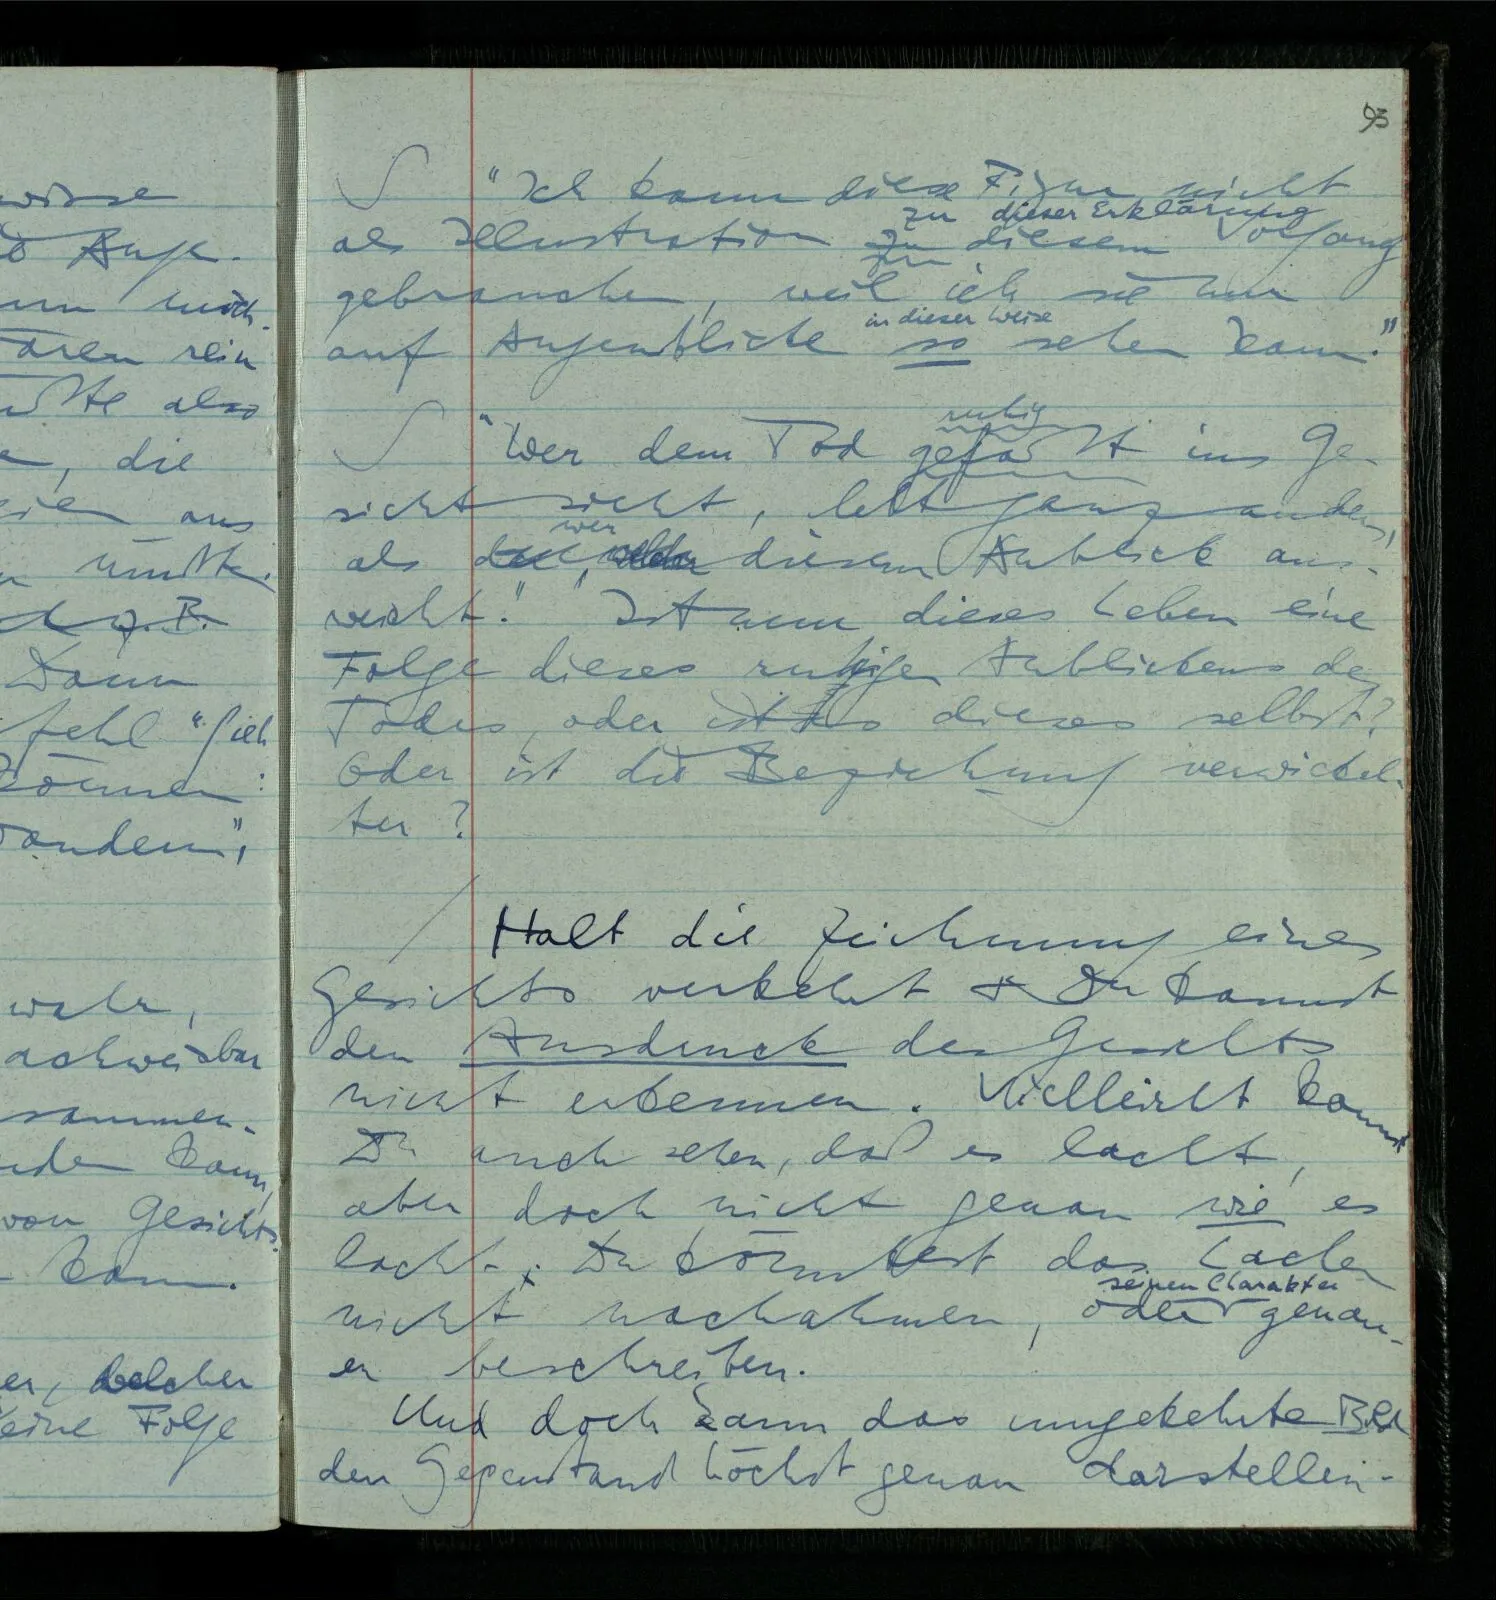 wisse
Aufe.
mich
ären rein
also
, die
aus
müßte.
z.B.
Dann
fehl "Sieh
können:
andern",
wahr,
achweisbar
sammen-
nden kann,
von Gesichts
kann.
er, welcher
eine Folge
93
S "Ich kann diese Figur nicht
zu dieser Erklärung
als Illustration zu diesem Vorgang
zur
gebrauchen, weil ich sie nur
in dieser Weise
auf Augenblicke so sehen kann."
ruhig
S "Wer dem Tod gefaßt ins Ge-
sicht sieht, lebt ganz anders,
wer
als der, welcher diesem Anblick aus-
weicht." Ist nun dieses Leben eine
Folge dieses ruhigen Anblickens des
Todes, oder ist es dieses selbst?
Oder ist die Beziehung verwickel-
ter?
/ Halt die Zeichnung eines
Gesichts verkehrt & Du kannst
den Ausdruck des Gesichts
nicht erkennen. Vielleicht kannst
Du auch sehen, daß es lacht,
aber doch nicht genau wie es
lacht. Du könntest das Lachen
seinen Charakter
nicht nachahmen, oder genau-
er beschreiben.
Und doch kann das umgekehrte Bild
den Gegenstand höchst genau darstellen.